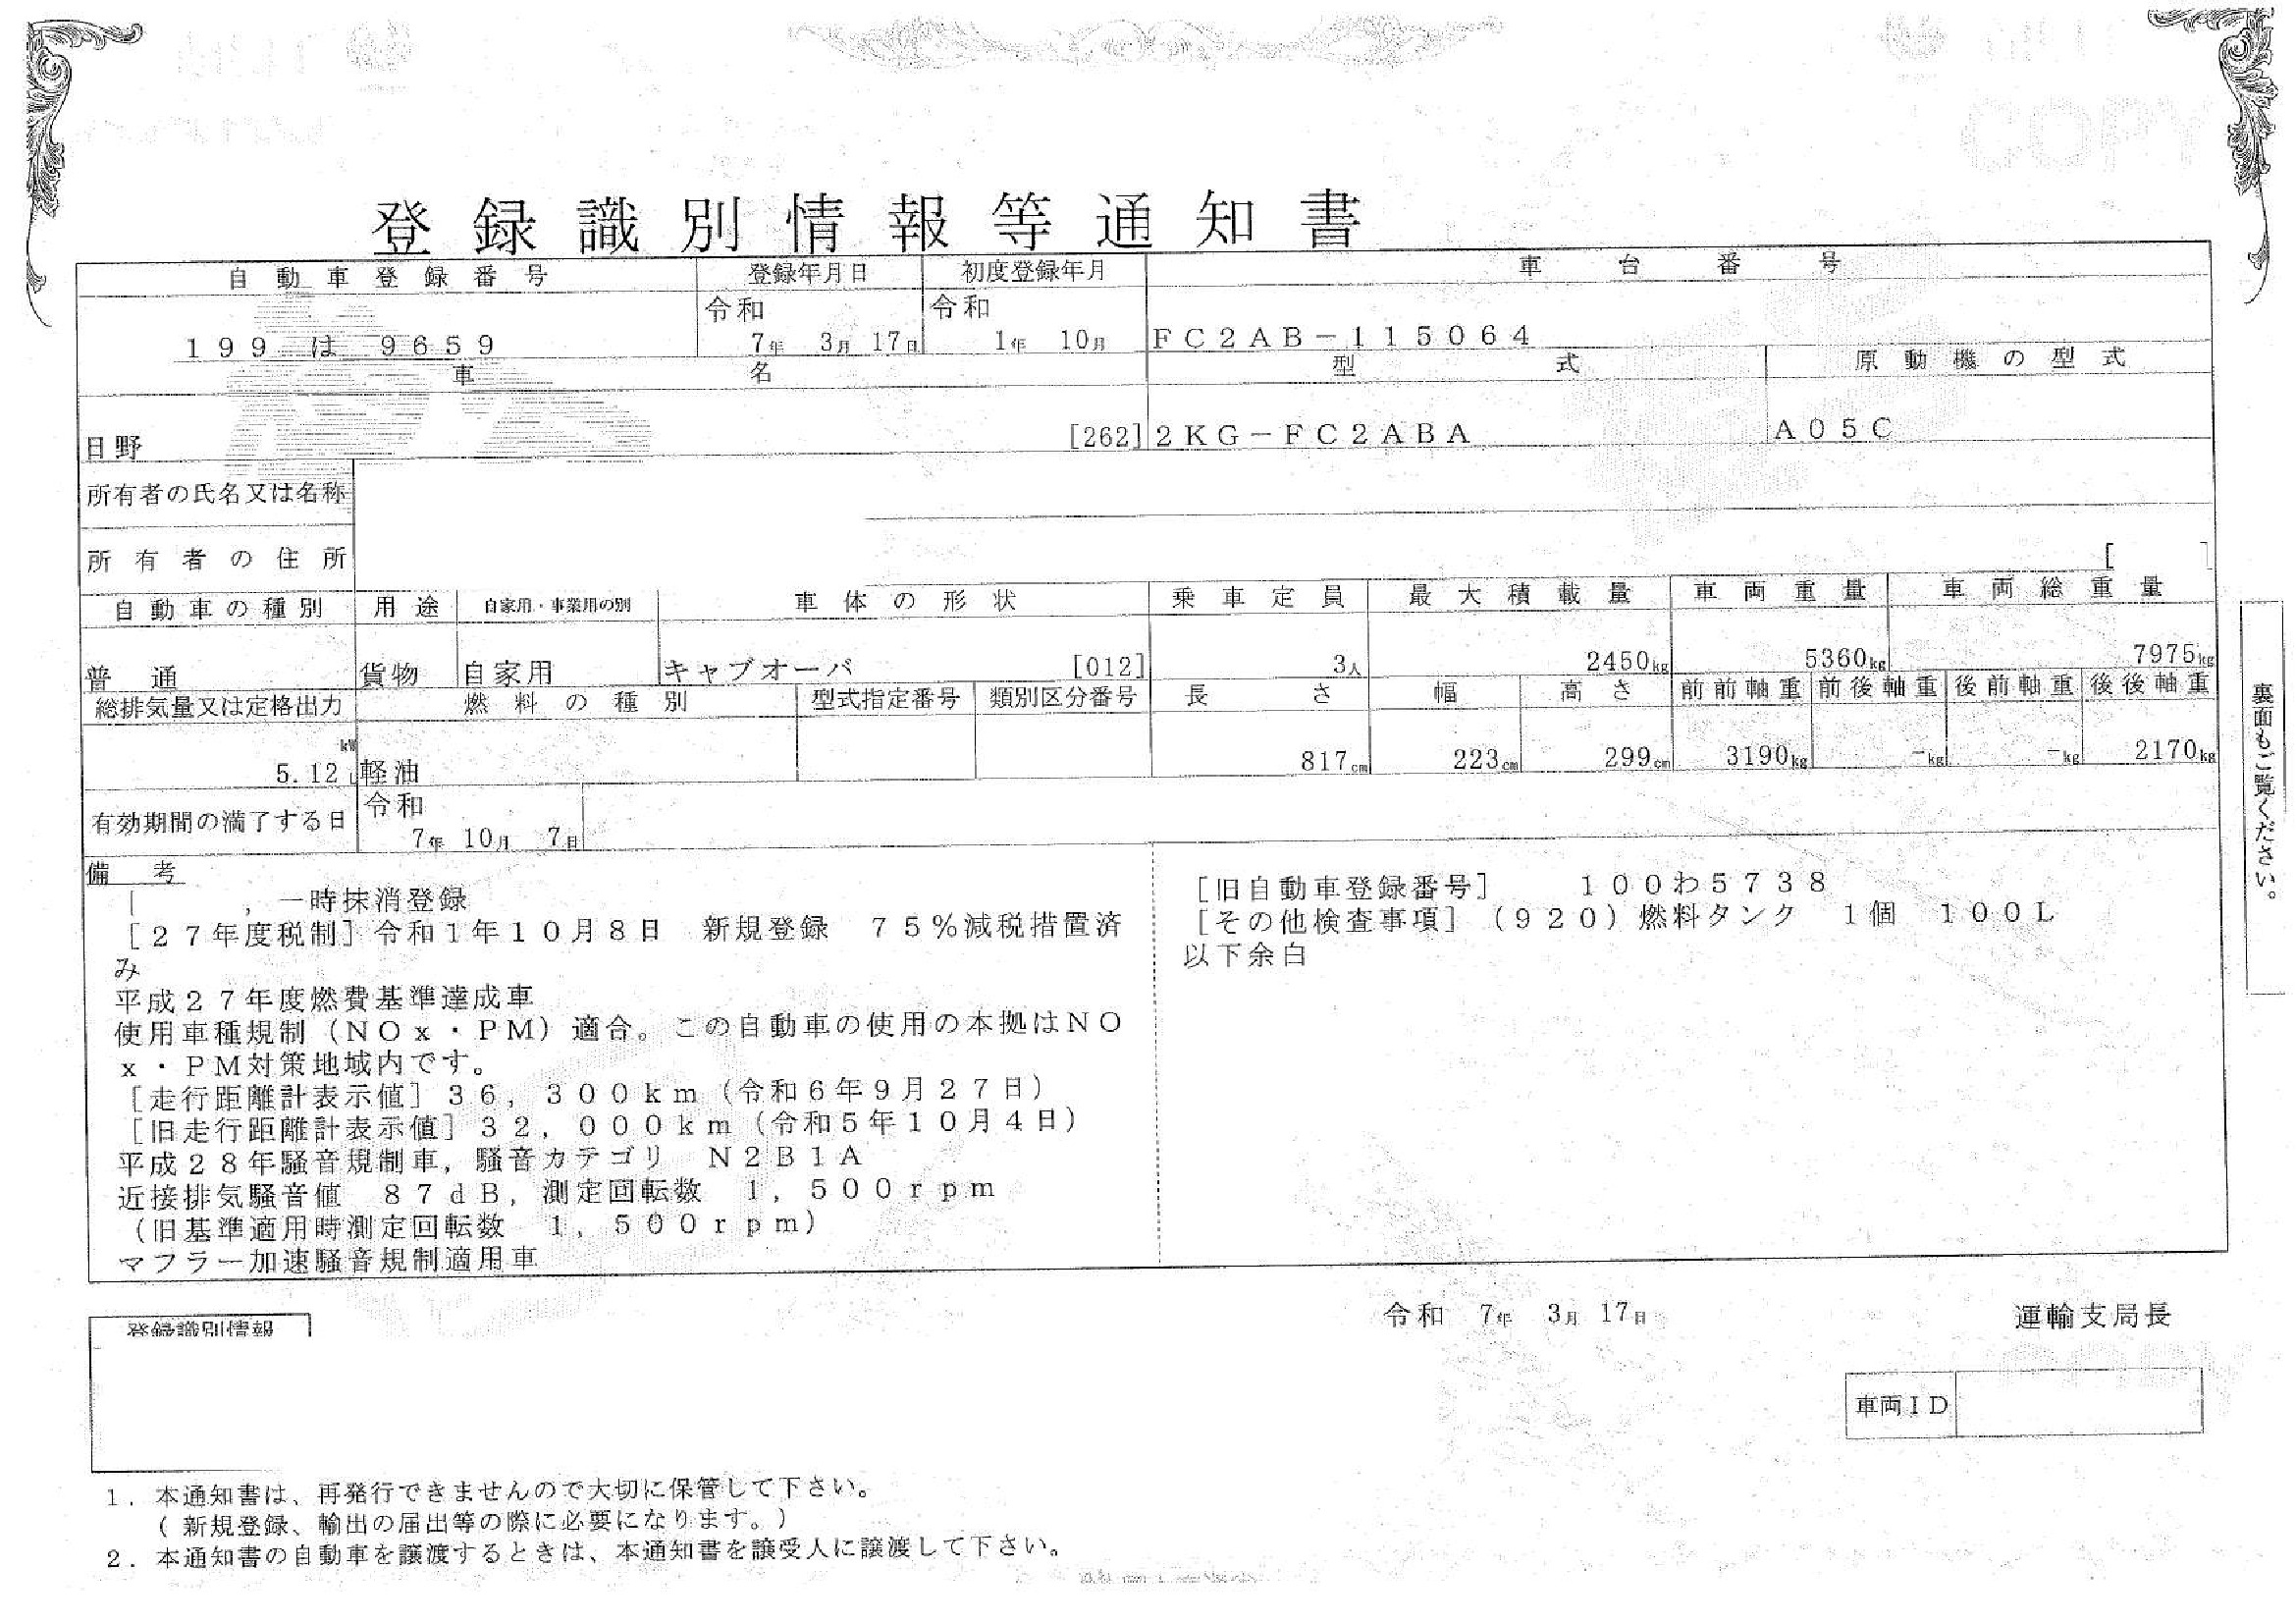 登録識別情報等通知書
自動車登録番号 登録年月日 初度登録年月 車台番号
令和 令和
199 は 9659 7年 3月 17日 1年 10月 FC2AB-115064
車名 型式 原動機の型式
日野 [262] 2KG-FC2ABA A05C
所有者の氏名又は名称
所有者の住所 [ ]
自動車の種別 用途 自家用・事業用の別 車体の形状 乗車定員 最大積載量 車両重量 車両総重量
普通 貨物 自家用 キャブオーバ [012] 3人 2450kg 5360kg 7975kg
総排気量又は定格出力 燃料の種別 型式指定番号 類別区分番号 長さ 幅 高さ 前前軸重 前後軸重 後前軸重 後後軸重
kW
5.12 L 軽油 817cm 223cm 299cm 3190kg -kg -kg 2170kg
有効期間の満了する日 令和
7年 10月 7日
備考
[ , 一時抹消登録
[27年度税制]令和1年10月8日 新規登録 75%減税措置済
み
平成27年度燃費基準達成車
使用車種規制(NOx・PM)適合。この自動車の使用の本拠はNO
x・PM対策地域内です。
[走行距離計表示値]36,300km(令和6年9月27日)
[旧走行距離計表示値]32,000km(令和5年10月4日)
平成28年騒音規制車,騒音カテゴリ N2B1A
近接排気騒音値 87dB,測定回転数 1,500rpm
(旧基準適用時測定回転数 1,500rpm)
マフラー加速騒音規制適用車
[旧自動車登録番号] 100わ5738
[その他検査事項](920)燃料タンク 1個 100L
以下余白
裏面もご覧ください。
令和 7年 3月 17日 運輸支局長
登録識別情報
車両ID
1. 本通知書は、再発行できませんので大切に保管して下さい。
(新規登録、輸出の届出等の際に必要になります。)
2. 本通知書の自動車を譲渡するときは、本通知書を譲受人に譲渡して下さい。